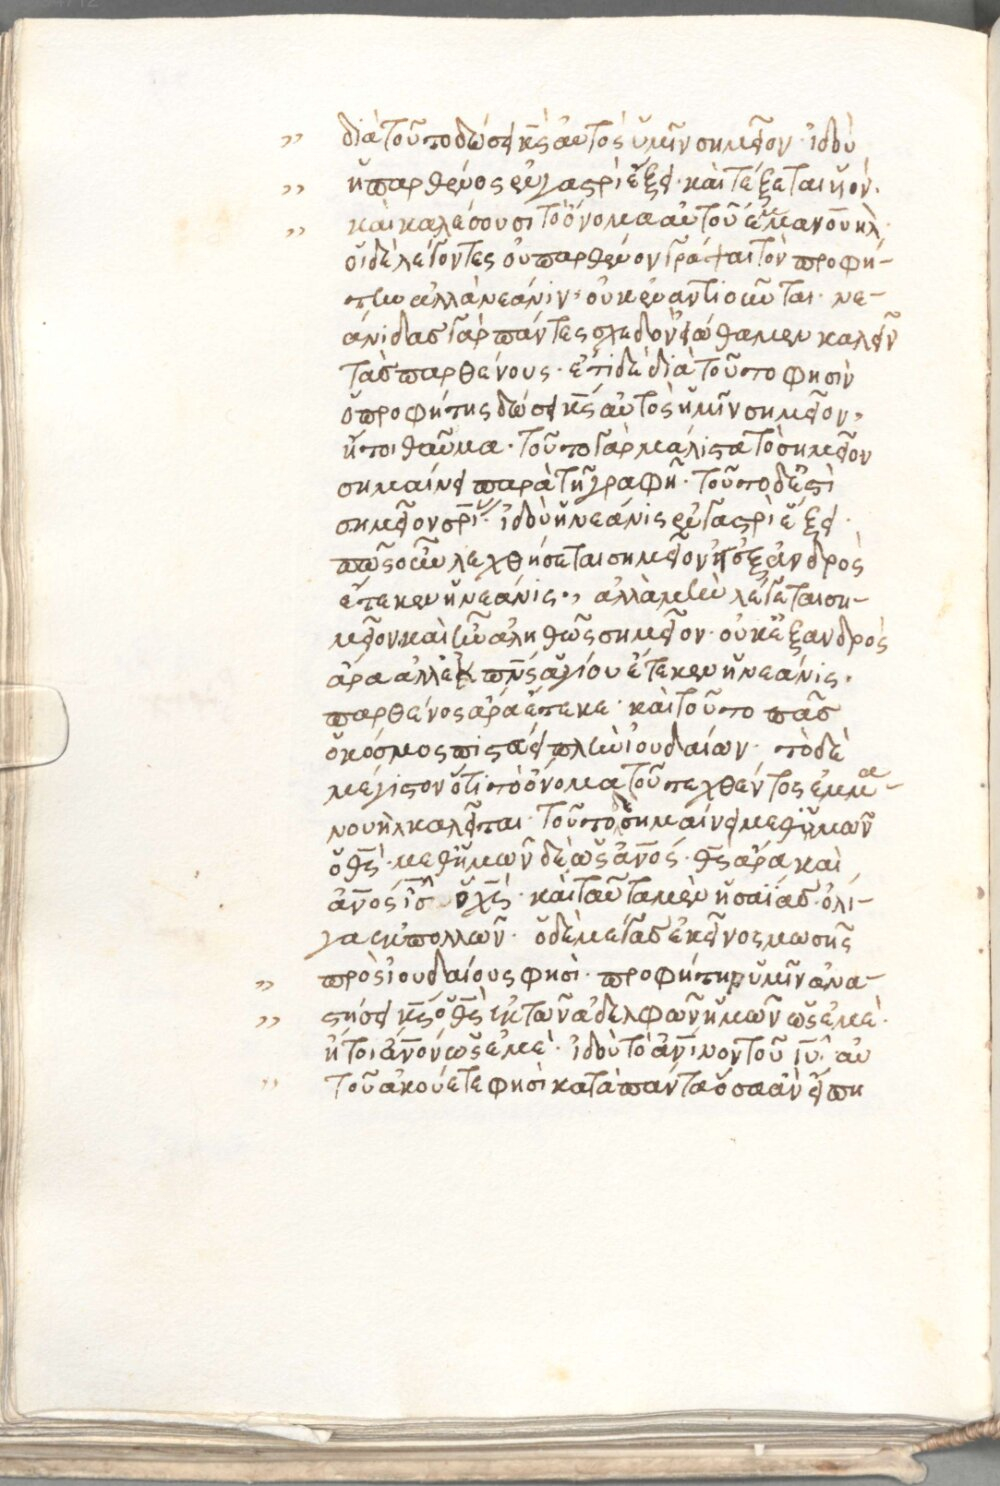 „ διὰ τοῦτο δώσει κ̅ς̅ αὐτὸς ὑμῖν σημεῖον· ἰδοὺ
„ ἡ παρθένος ἐν γαστρὶ ἕξει· καὶ τέξεται υἱόν·
„ καὶ καλέσουσι τὸ ὄνομα αὐτοῦ ἐμμανουήλ·
οἱ δὲ λέγοντες οὐ παρθένον γράψαι τὸν προφή-
την ἀλλὰ νεάνιν· οὐκ ἐναντιοῦνται· νε-
άνιδας γὰρ πάντες σχεδὸν εἰώθαμεν καλεῖν
τὰς παρθένους· ἐπὶ δὲ διὰ τοῦτο φησὶν
ὁ προφήτης δώσει κ̅ς̅ αὐτὸς ἡμῖν σημεῖον,
ἤτοι θαῦμα· τοῦτο γὰρ μάλιστα τὸ σημεῖον
σημαίνει παρὰ τῇ γραφῇ· τοῦτο δέ ἐστι
σημεῖον ἰδοὺ ἡ νεάνις ἐν γαστρὶ ἕξει·
πῶς οὖν λεχθήσεται σημεῖον εἰ ἐξ ἀνδρὸς
ἔτεκεν ἡ νεάνις·, ἀλλὰ μὴν λέγεται ση-
μεῖον καὶ ἦν ἀληθῶς σημεῖον· οὐκ ἐξ ἀνδρὸς
ἄρα ἀλλ' ἐκ π̅ν̅ς̅ ἁγίου ἔτεκεν ἡ νεάνις·
παρθένος ἄρα ἔτεκε· καὶ τοῦτο πᾶς
ὁ κόσμος πιστεύει πλὴν ἰουδαίων· τὸ δὲ
μέγιστον ὅτι τὸ ὄνομα τοῦ τεχθέντος ἐμμα-
νουὴλ καλεῖται· τοῦτο σημαίνει μεθ' ἡμῶν
ὁ θ̅ς̅· μεθ' ἡμῶν δὲ ὡς ἄν̅ο̅ς· θ̅ς̅ ἄρα καὶ
ἄν̅ο̅ς ὁ χ̅ς̅· καὶ ταῦτα μὲν ἡσαΐας· ὀλί-
γα ἐκ πολλῶν· ὁ δὲ μέγας ἐκεῖνος μωσῆς
„ πρὸς ἰουδαίους φησί· προφήτην ὑμῖν ἀνα-
„ στήσει κ̅ς̅ ὁ θ̅ς̅ ἐκ τῶν ἀδελφῶν ἡμῶν ὡς ἐμέ·
ἤτοι ἄν̅ο̅ν ὡς ἐμέ· ἰδοὺ τὸ ἀν̅ι̅νον τοῦ ι̅υ̅· αὐ
„ τοῦ ἀκούετε φησὶ κατὰ πάντα ὅσα ἂν εἴπῃ